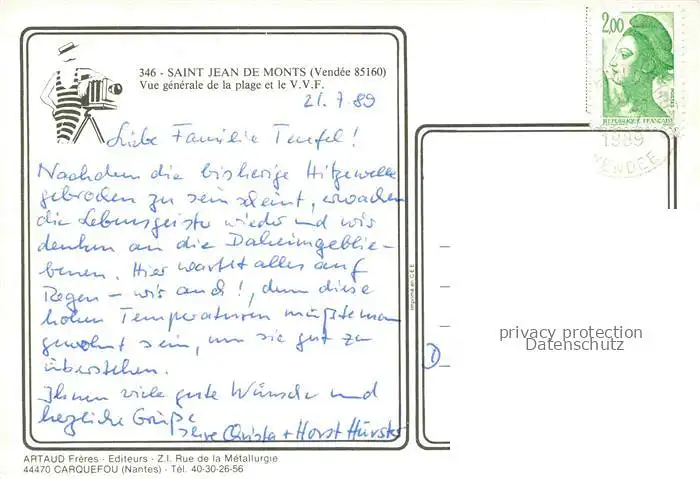 346 - SAINT JEAN DE MONTS (Vendée 85160)
Vue générale de la plage et le V.V.F.
21.7.89
Liebe Familie Teufel!
Nachdem die bisherige Hitzewelle
gebrochen zu sein scheint, erwachen
die Lebensgeister wieder und wir
denken an die Daheimgeblie-
benen. Hier wartet alles auf
Regen - wir auch!, denn diese
hohen Temperaturen müsste man
gewohnt sein, um sie gut zu
überstehen.
Ihnen viele gute Wünsche und
herzliche Grüße
Ihre Christa + Horst
ARTAUD Frères - Editeurs - Z.I. Rue de la Métallurgie
44470 CARQUEFOU (Nantes) - Tél. 40-30-26-56
Imprimé en C.E.E.
2,00
REPUBLIQUE FRANÇAISE
1989
VENDEE
D
privacy protection
Datenschutz